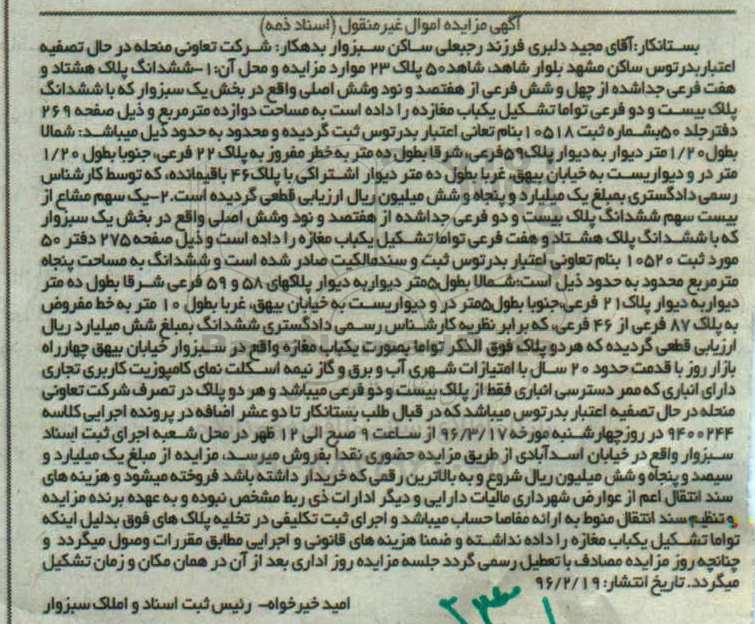 آگهی مزایده اموال غیرمنقول (اسناد ذمه)
بستانکار: آقای مجید دلبری فرزند رجبعلی ساکن سبزوار بدهکار: شرکت تعاونی منحله در حال تصفیه
اعتبار بدر توس ساکن مشهد بلوار شاهد، شاهد۵۰ پلاک ۲۳ موارد مزایده و محل آن: ۱-ششدانگ پلاک هشتاد و
هفت فرعی جداشده از چهل و شش فرعی از هفتصد و نود وشش اصلی واقع در بخش یک سبزوار که با ششدانگ
پلاک بیست و دو فرعی تواما تشکیل یکباب مغازه را داده است به مساحت دوازده مترمربع و ذیل صفحه ۲۶۹
دفترجلد ۵۰ بشماره ثبت ۱۰۵۱۸ بنام تعانی اعتبار بدرتوس ثبت گردیده و محدود به حدود ذیل میباشد: شمالا
بطول ۱/۲۰ متر دیوار به دیوار پلاک ۵۹ فرعی، شرقا بطول ده متر به خطر مفروز به پلاک ۲۲ فرعی، جنوبا بطول ۱/۲۰
متر در و دیواریست به خیابان بیهق، غربا بطول ده متر دیوار اشتراکی با پلاک ۴۶ باقیمانده، که توسط کارشناس
رسمی دادگستری بمبلغ یک میلیارد و پنجاه و شش میلیون ریال ارزیابی قطعی گردیده است. ۲-یک سهم مشاع از
بیست سهم ششدانگ پلاک بیست و دو فرعی جداشده از هفتصد و نود وشش اصلی واقع در بخش یک سبزوار
که با ششدانگ پلاک هشتاد و هفت فرعی تواما تشکیل یکباب مغازه را داده است و ذیل صفحه ۲۷۵ دفتر ۵۰
مورد ثبت ۱۰۵۲۰ بنام تعاونی اعتبار بدرتوس ثبت و سندمالکیت صادر شده است و ششدانگ به مساحت پنجاه
مترمربع محدود به حدود ذیل است: شمالا بطول ۵متر دیواربه دیوار پلاکهای ۵۸ و ۵۹ فرعی شرقا بطول ده متر
دیواربه دیوار پلاک ۲۱ فرعی، جنوبا بطول ۵متر در و دیواریست به خیابان بیهق، غربا بطول ۱۰ متر به خط مفروض
به پلاک ۸۷ فرعی از ۴۶ فرعی، که برابر نظریه کارشناس رسمی دادگستری ششدانگ بمبلغ شش میلیارد ریال
ارزیابی قطعی گردیده که هر دو پلاک فوق الذکر تواما بصورت یکباب مغازه واقع در سبزوار خیابان بیهق چهارراه
بازار روز با قدمت حدود ۲۰ سال با امتیازات شهری آب و برق و گاز نیمه اسکلت نمای کامپوزیت کاربری تجاری
دارای انباری که ممر دسترسی انباری فقط از پلاک بیست و دو فرعی میباشد و هر دو پلاک در تصرف شرکت تعاونی
منحله در حال تصفیه اعتبار بدرتوس میباشد که در قبال طلب بستانکار تا دو عشر اضافه در پرونده اجرایی کلاسه
۹۴۰۰۲۴۴ در روز چهارشنبه مورخه ۹۶/۳/۱۷ از ساعت ۹ صبح الی ۱۲ ظهر در محل شعبه اجرای ثبت اسناد
سبزوار واقع در خیابان اسدآبادی از طریق مزایده حضوری نقدا بفروش میرسد، مزایده از مبلغ یک میلیارد و
سیصد و پنجاه و شش میلیون ریال شروع و به بالاترین رقمی که خریدار داشته باشد فروخته میشود و هزینه های
سند انتقال اعم از عوارض شهرداری مالیات دارایی و دیگر ادارات ذی ربط مشخص نبوده و به عهده برنده مزایده
و تنظیم سند انتقال منوط به ارائه مفاصا حساب میباشد و اجرای ثبت تکلیفی در تخلیه پلاک های فوق بدلیل اینکه
تواما تشکیل یکباب مغازه را داده نداشته و ضمنا هزینه های قانونی و اجرایی مطابق مقررات وصول میگردد و
چنانچه روز مزایده مصادف با تعطیل رسمی گردد جلسه مزایده روز اداری بعد از آن در همان مکان و زمان تشکیل
میگردد. تاریخ انتشار: ۹۶/۲/۱۹
امید خیرخواه- رئیس ثبت اسناد و املاک سبزوار